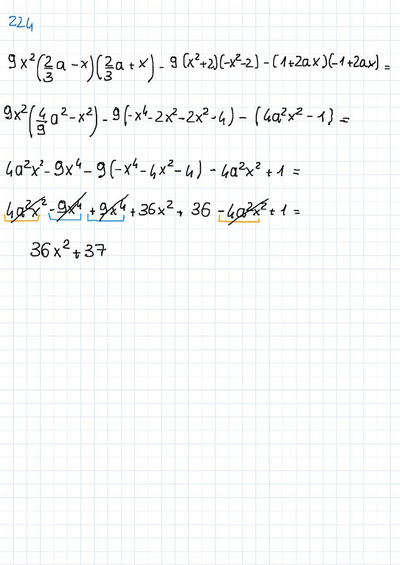 224
9x²(2/3 a - x)(2/3 a + x) - 9(x²+2)(-x²-2) - (1+2ax)(-1+2ax) =
9x²(4/9 a² - x²) - 9(-x⁴-2x²-2x²-4) - (4a²x²-1) =
4a²x² - 9x⁴ - 9(-x⁴-4x²-4) - 4a²x² + 1 =
4a²x² - 9x⁴ + 9x⁴ + 36x² + 36 - 4a²x² + 1 =
36x² + 37